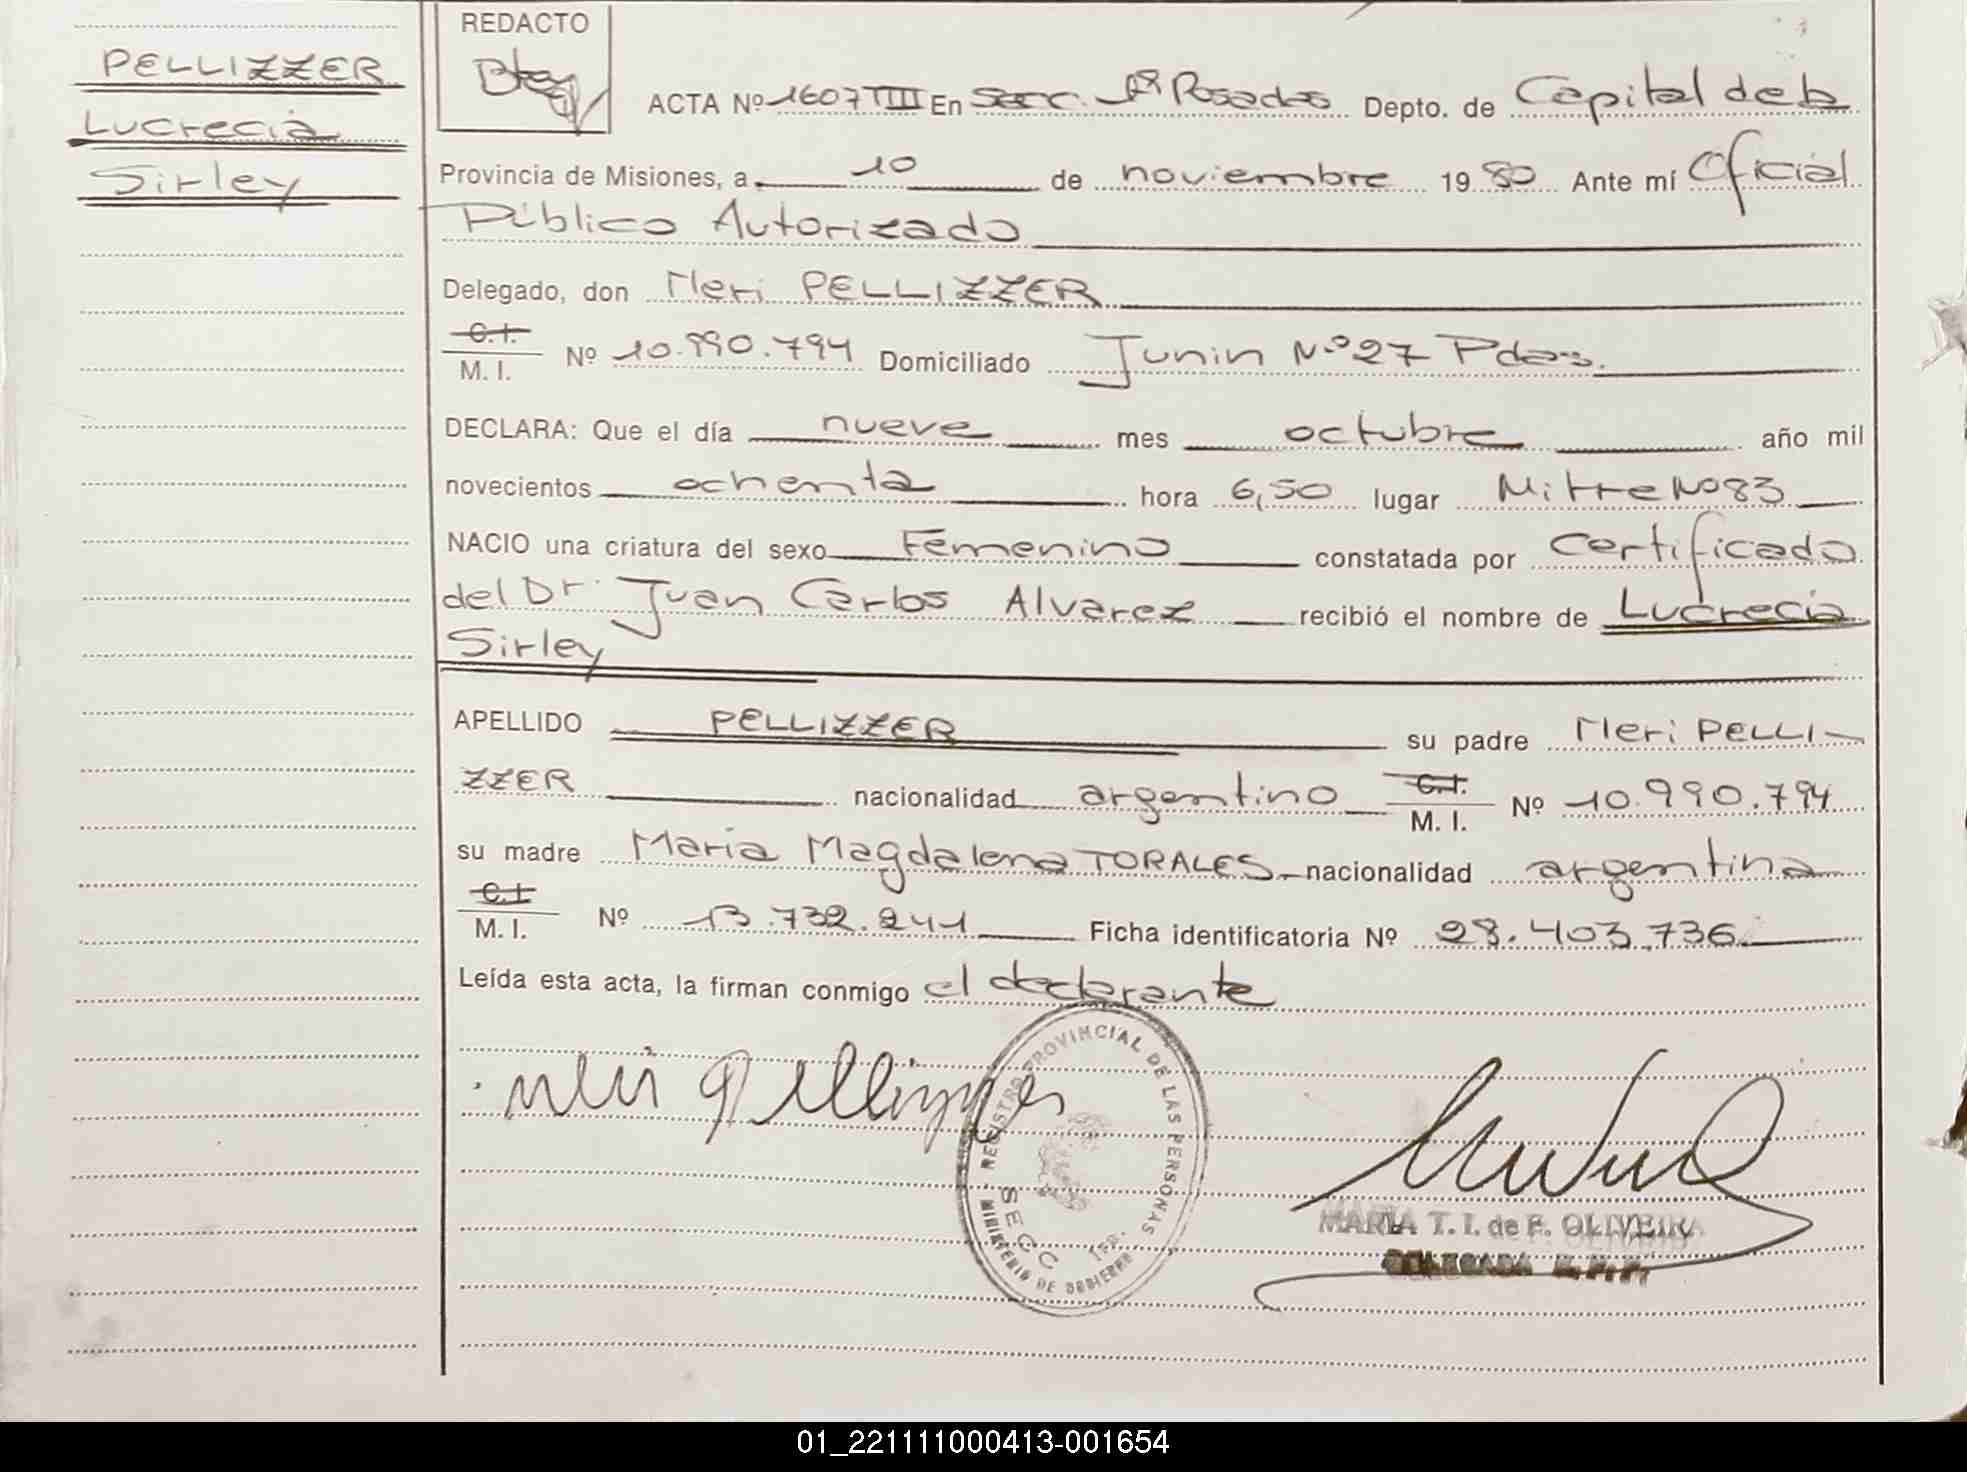 PELLIZZER
Lucrecia
Sirley
REDACTO
ACTA Nº 1607 TIII En Secc. 1ª Posadas Depto. de Capital de la
Provincia de Misiones, a 10 de noviembre 1980 Ante mí Oficial
Público Autorizado
Delegado, don Neri PELLIZZER
C.I.
M. I. Nº 10.990.794 Domiciliado Junin Nº 27 Pdas.
DECLARA: Que el día nueve mes octubre año mil
novecientos ochenta hora 6,50 lugar Mitre Nº 83
NACIO una criatura del sexo Femenino constatada por Certificado
del Dr. Juan Carlos Alvarez recibió el nombre de Lucrecia
Sirley
APELLIDO PELLIZZER su padre Neri PELLI-
ZZER nacionalidad argentino C.I. M. I. Nº 10.990.794
su madre Maria Magdalena TORALES nacionalidad argentina
C.I.
M. I. Nº 13.732.241 Ficha identificatoria Nº 28.403.736
Leída esta acta, la firman conmigo el declarante
Neri Pellizzer
REGISTRO PROVINCIAL DE LAS PERSONAS
SECC 1RA.
MINISTERIO DE GOBIERNO
MARIA T. I. de F. OLIVEIRA
DELEGADA R. P. P.
01_221111000413-001654